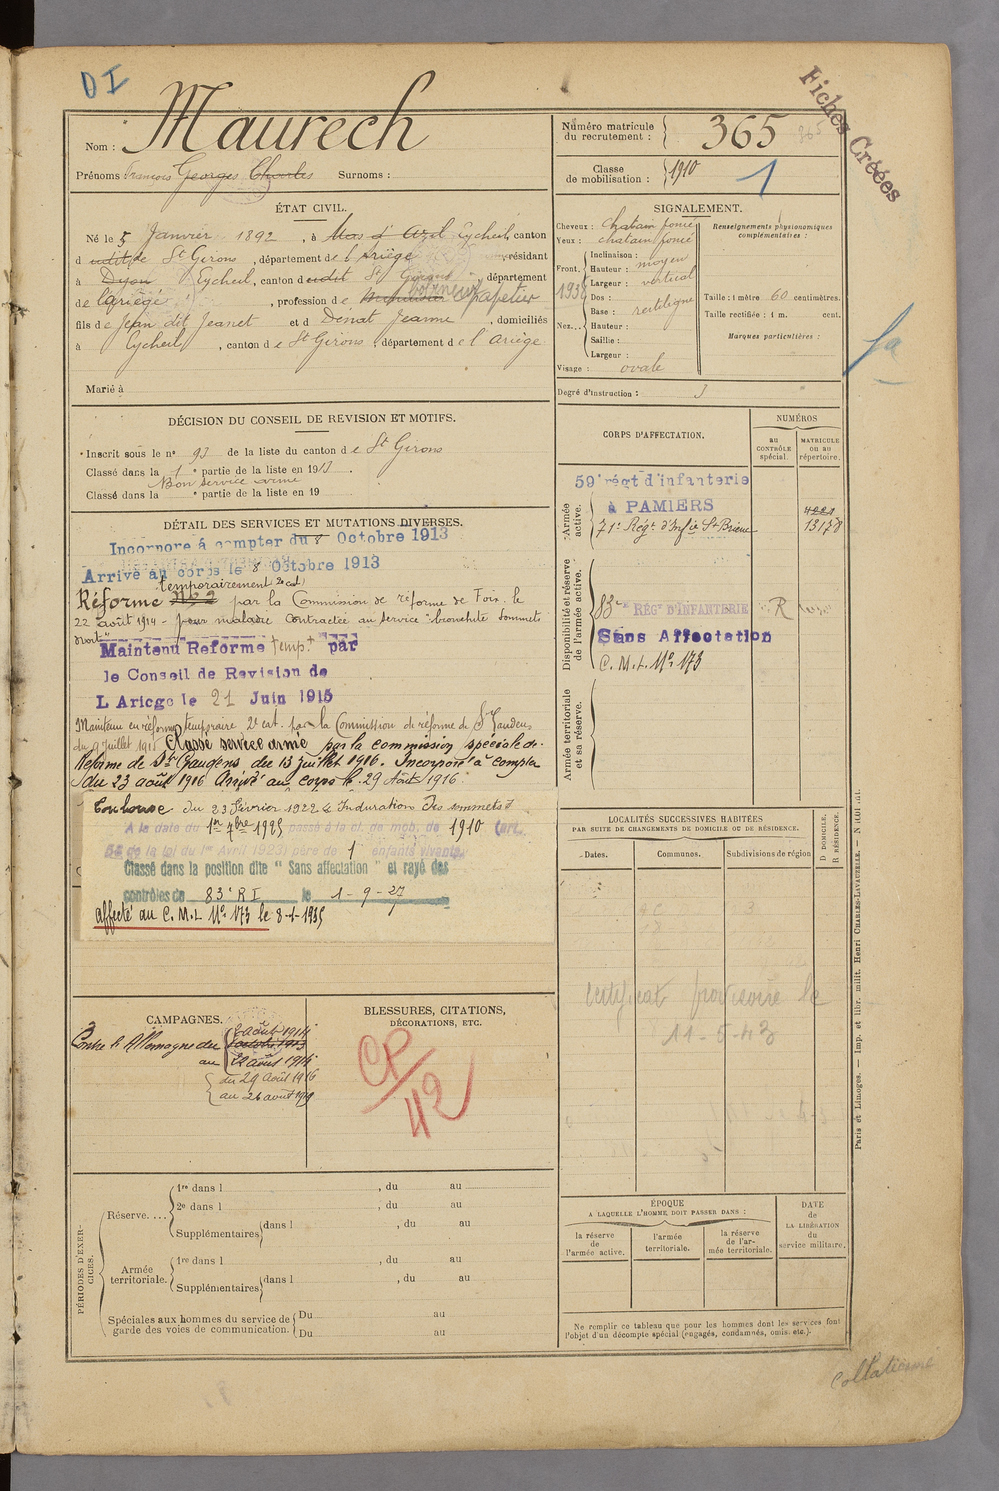 DI
Maurech
Nom :
Prénoms François Georges Charles Surnoms :
Numéro matricule du recrutement : 365
Classe de mobilisation : 1910
1
Fiches Créées
ÉTAT CIVIL.
Né le 5 Janvier 1892, à Mas d'Azil Eycheil, canton
d udit de St Girons, département de l'Ariège, résidant
à Dyon Eycheil, canton dudit St Girons, département
de l'ariège, profession de papetier
fils de Jean dit Jeanet et d Dénat Jeanne, domiciliés
à Eycheil, canton de St Girons, département de l'Ariège.
Marié à
SIGNALEMENT.
Cheveux : chatain foncé
Yeux : chatain foncé
Front. Inclinaison :
Hauteur : moyen
Largeur : vertical
1938
Nez... Dos :
Base : rectiligne
Hauteur :
Saillie :
Largeur :
Visage : ovale
Renseignements physionomiques complémentaires :
Taille : 1 mètre 60 centimètres.
Taille rectifiée : 1 m. cent.
Marques particulières :
Degré d'instruction : 3
DÉCISION DU CONSEIL DE REVISION ET MOTIFS.
Inscrit sous le n° 93 de la liste du canton de St Girons
Classé dans la 1e partie de la liste en 1913.
Bon service armé
Classé dans la e partie de la liste en 19
DÉTAIL DES SERVICES ET MUTATIONS DIVERSES.
Incorporé à compter du 8 Octobre 1913
Arrivé au corps le 8 Octobre 1913
temporairement 2e cat
Réformé N° 2 par la Commission de réforme de Foix le
22 août 1914 - pour maladie contractée au service "bronchite sommets
Maintenu Réformé temp. par
le Conseil de Revision de
L'Ariège le 21 Juin 1915
Maintenu en réforme temporaire 2e cat. par la Commission de réforme de St Gaudens
du 9 juillet 1915 Classé service armé par la commission spéciale de
Réforme de St Gaugens du 13 juillet 1916. Incorporé à compter
du 23 août 1916 Arrivé au corps le 29 Août 1916
Toulouse du 23 Février 1922 Induration des sommets
A la date du 1er 7bre 1925 passé à la cl. de mob. de 1910 (art.
58 de la loi du 1er Avril 1923) père de 1 enfants vivants.
Classé dans la position dite "Sans affectation" et rayé des
contrôles de 83e R I le 1-9-27
affecté au C.M.L N° 173 le 8-1-1935
CORPS D'AFFECTATION.
NUMÉROS
au CONTRÔLE spécial.
MATRICULE ou au répertoire.
Armée active.
59e régt d'infanterie
à PAMIERS
71e Régt d'Infie St Brieuc 13178
Disponibilité et réserve de l'armée active.
83e RÉGt D'INFANTERIE R
Sans Affectation
C.M.L. N° 173
Armée territoriale et sa réserve.
LOCALITÉS SUCCESSIVES HABITÉES
PAR SUITE DE CHANGEMENTS DE DOMICILE OU DE RÉSIDENCE.
Dates. Communes. Subdivisions de région
D DOMICILE. R RÉSIDENCE.
Certificat provisoire le
11-5-43
CAMPAGNES.
Contre l'Allemagne du 2 août 1914
8 octobre 1913
au 22 août 1914
du 29 août 1916
au 26 août 1919
BLESSURES, CITATIONS,
DÉCORATIONS, ETC.
CP/42
PÉRIODES D'EXERCICES.
Réserve....
1re dans l , du au
2e dans l , du au
Supplémentaires dans l , du au
Armée territoriale.
1re dans l , du au
Supplémentaires dans l , du au
Spéciales aux hommes du service de garde des voies de communication.
Du au
Du au
ÉPOQUE
A LAQUELLE L'HOMME DOIT PASSER DANS :
la réserve de l'armée active.
l'armée territoriale.
la réserve de l'armée territoriale.
DATE de LA LIBÉRATION du service militaire.
Ne remplir ce tableau que pour les hommes dont les services font
l'objet d'un décompte spécial (engagés, condamnés, omis, etc.).
Paris et Limoges. — Imp. et libr. milit. Henri CHARLES-LAVAUZELLE.
Collationné